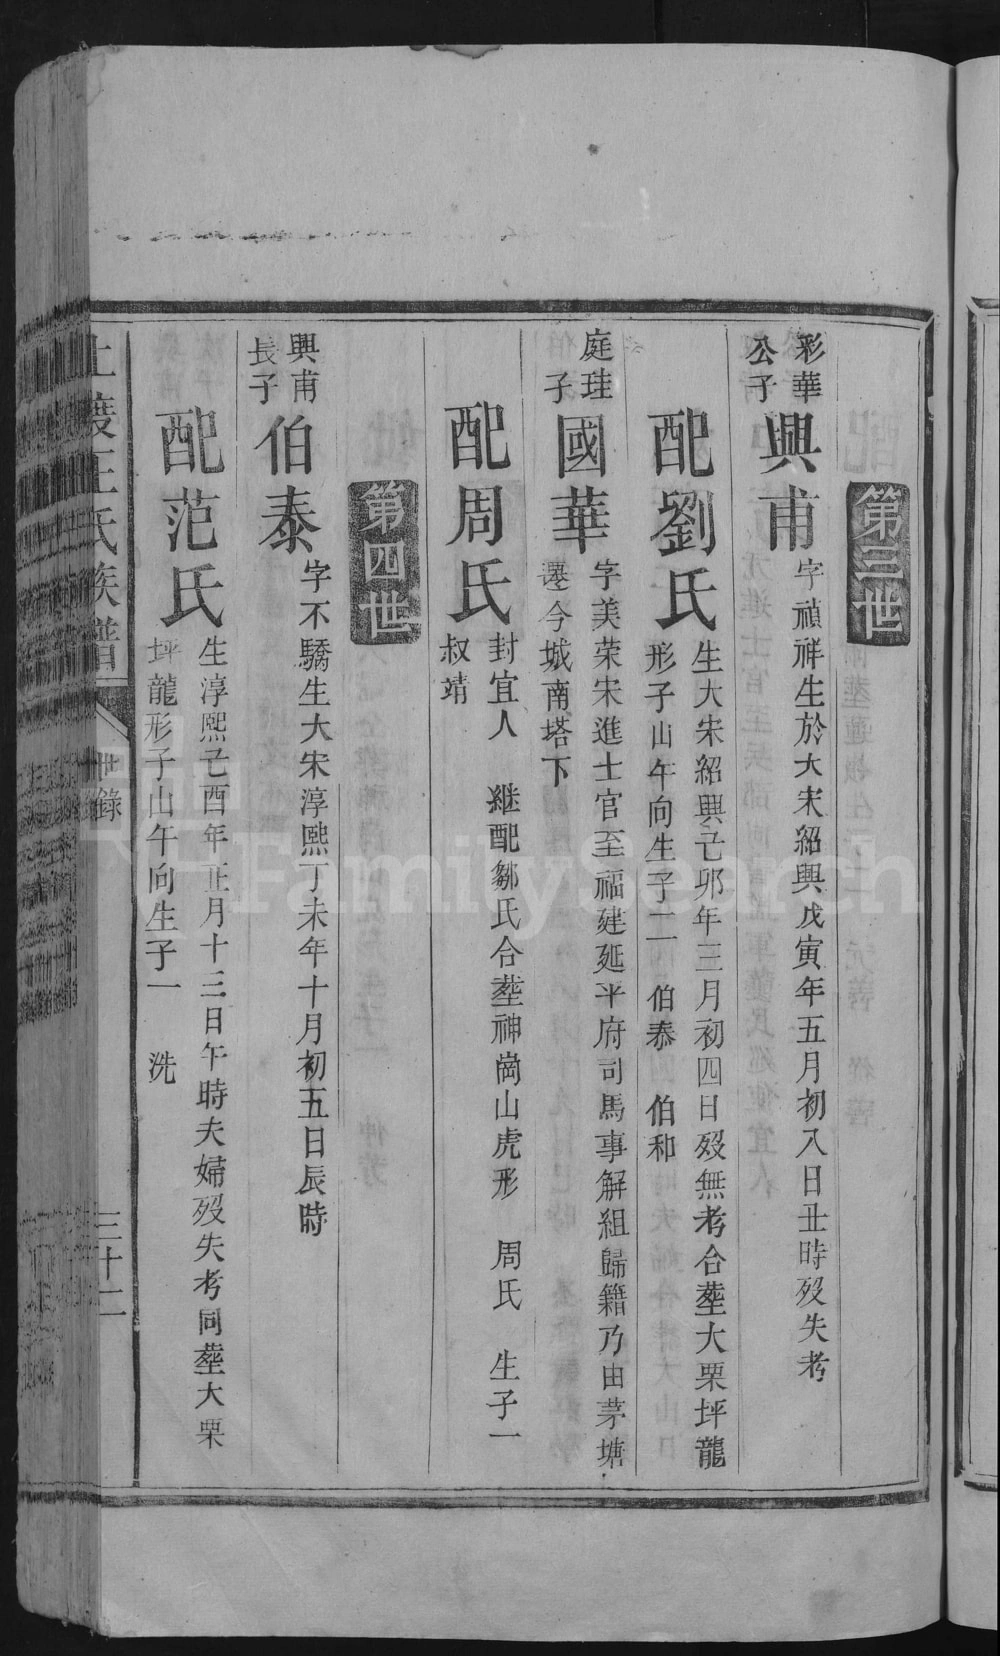 第三世
彩華公子
興甫
字禎祥生於大宋紹興戊寅年五月初八日丑時歿失考
配劉氏
生大宋紹興己卯年三月初四日歿無考合塟大栗坪龍
形子山午向生子二　伯泰　伯和
庭珪子
國華
字美荣宋進士官至福建延平府司馬事解組歸籍乃由茅塘
遷今城南塔下
配周氏
封宜人　継配鄒氏合塟神崗山虎形　周氏　生子一
叔靖
第四世
興甫長子
伯泰
字不驕生大宋淳熙丁未年十月初五日辰時
配范氏
生淳熙己酉年正月十三日午時夫婦歿失考同塟大栗
坪龍形子山午向生子一　洗
王氏族譜
世錄
三十二
FamilySearch